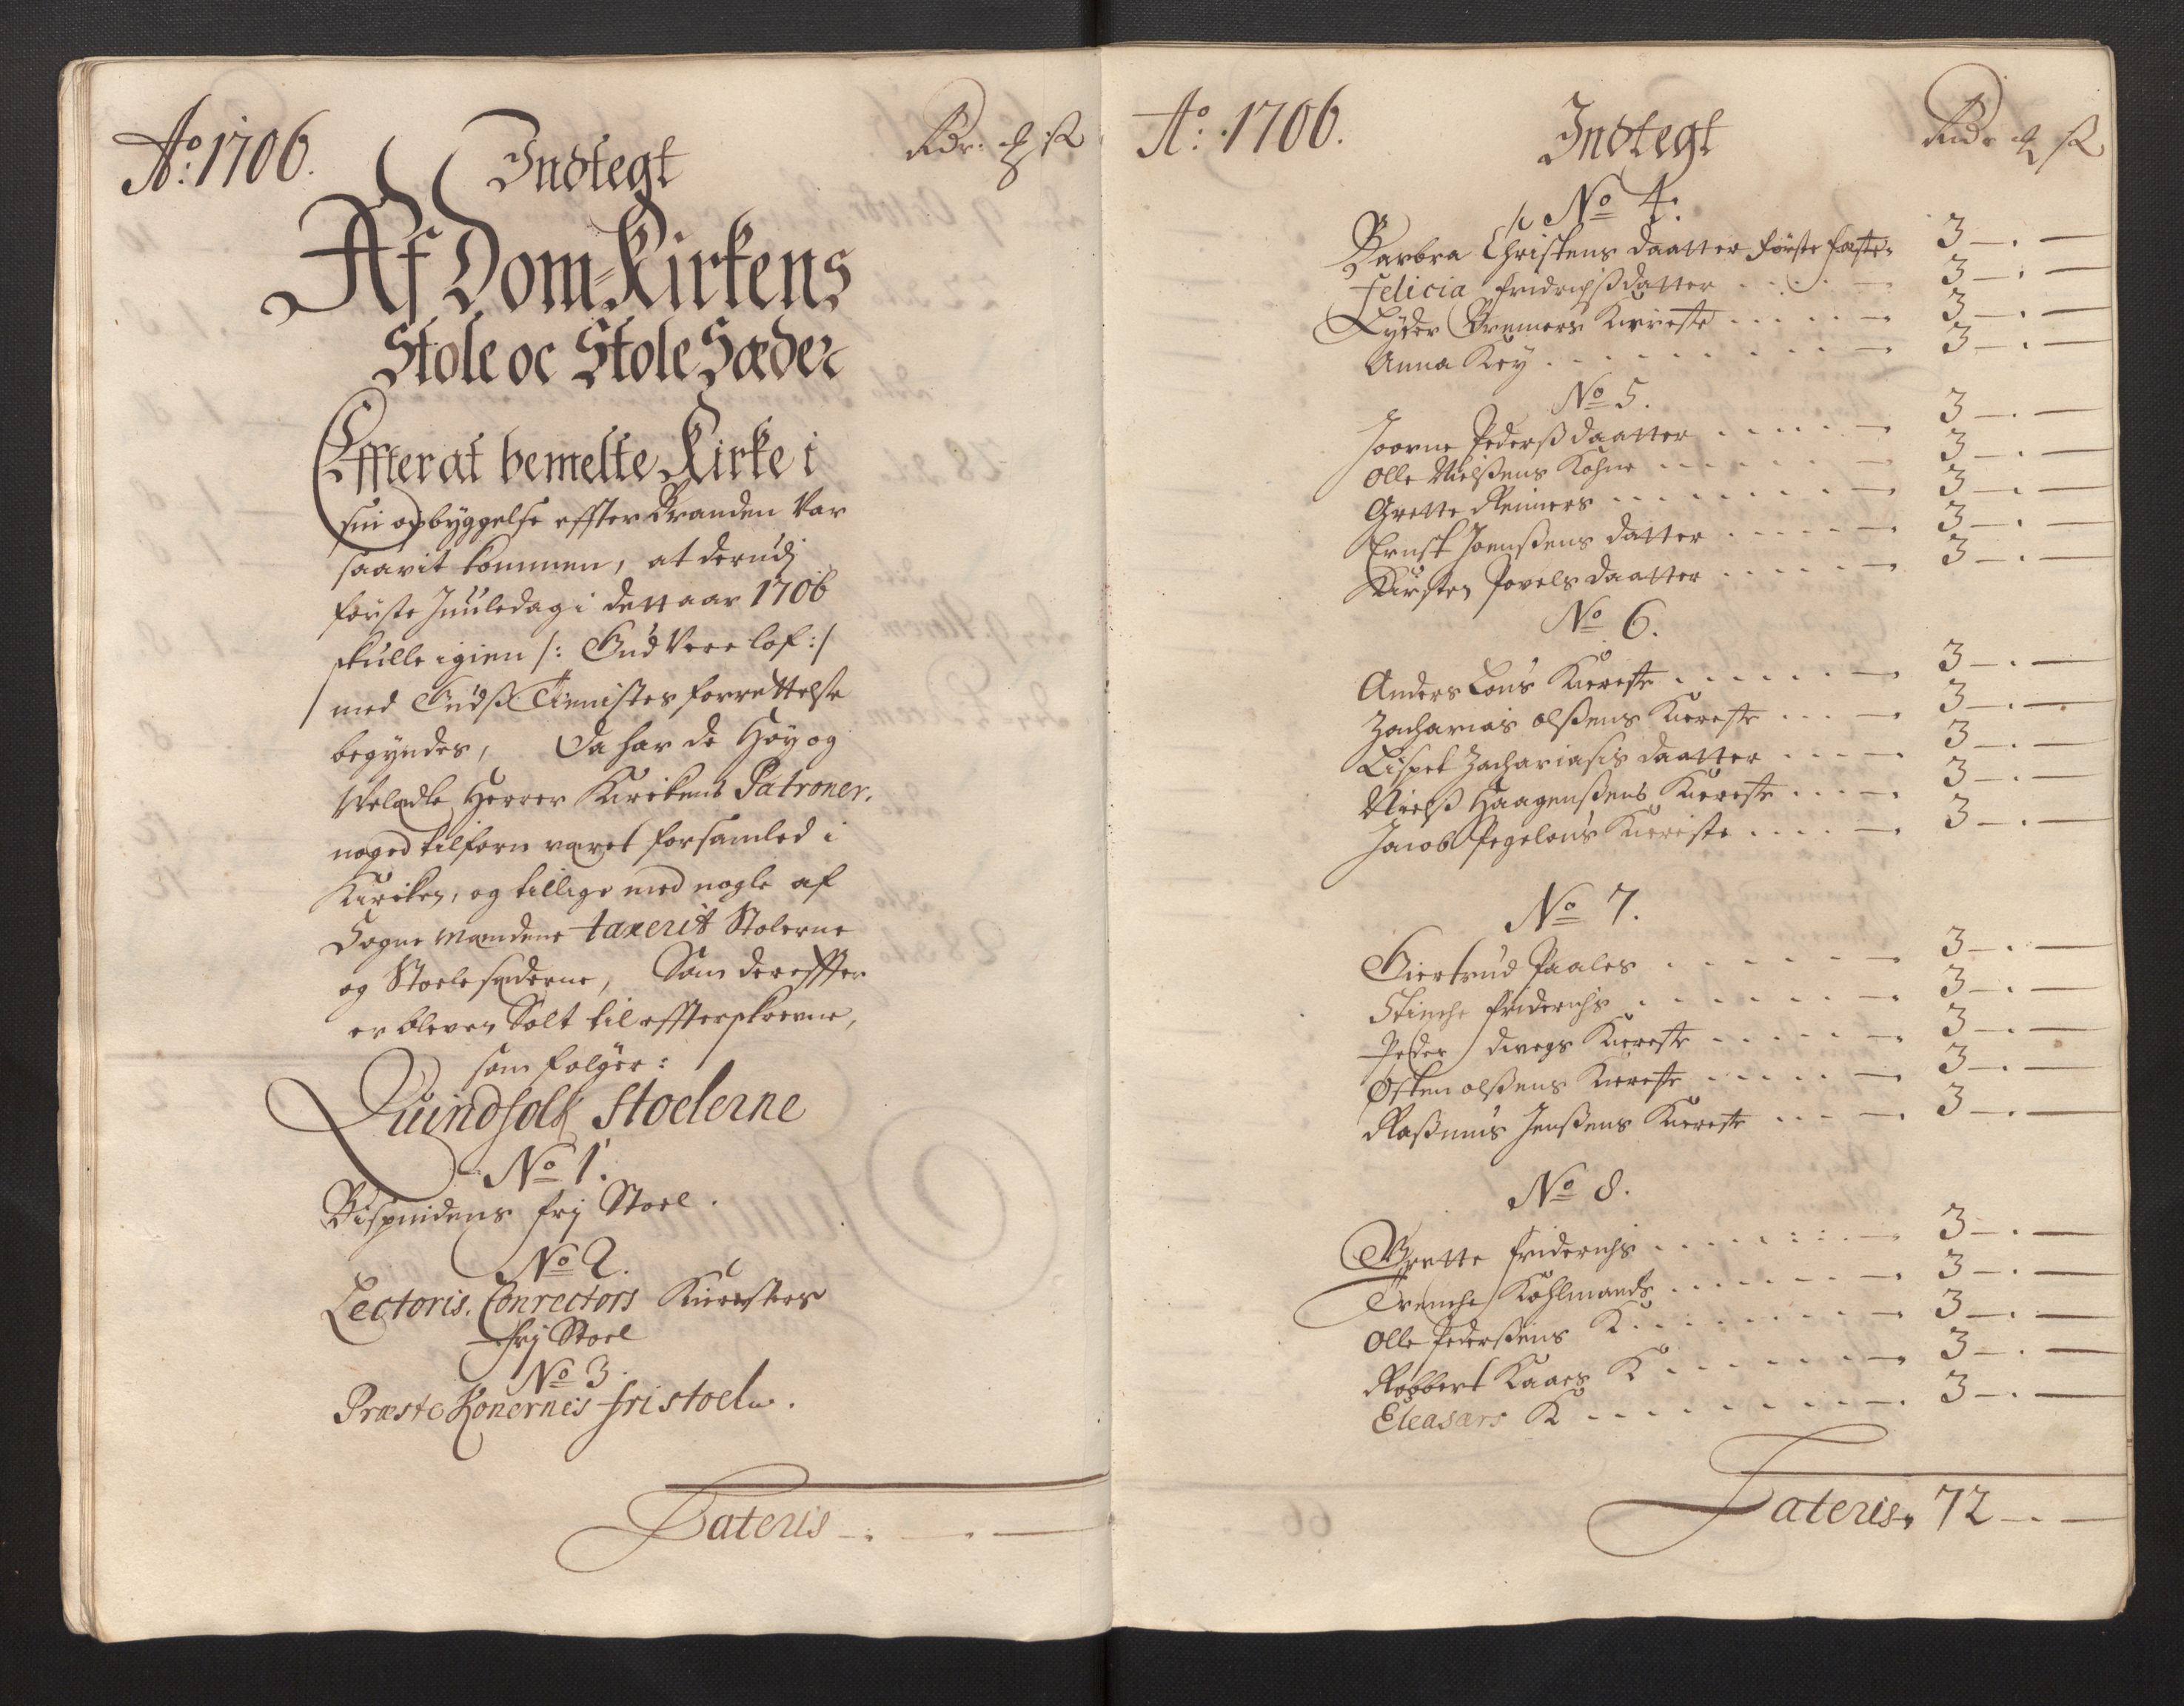 Ao: 1706. Indtegt Rdr. ℳ ß
Af Dom-Kirkens
Stole oc Stole Sæder
Effter at bemelte Kirke i
sin opbyggelse effter Branden var
saavit kommen, at derudj
første Juuledag i dett aar 1706
skulle igien /: Gud være lof :/
med Gudß Tienistes forrettelse
begyndes, Da har de Høy og
Velædle Herrer Kirckens Patroner,
noged tilforn været forsamled i
Kircken, og tillige med nogle af
Sogne Mændene taxerit Stolerne
og Stoelesæderne, Som dereffter
er bleven Solt til effterskrevne,
som følger:
Quindfolk Stoelerne
No 1.
Bispindens frj Stoel.
No 2.
Lectoris, Conrectors Kieresters
frj Stoel
No 3.
Præste Konernes fri stoel.
Lateris — . —
Ao: 1706. Indtegt Rdr ℳ ß
No 4.
Barbra Christens daatter første fæste 3 — . —
Felicia Fridrichßdatter . . . . 3 — . —
Lyder Bremers Kiereste . . . . . 3 — . —
Anna Key . . . . . . . . 3 — . —
No 5.
Joorne Pederß daatter . . . . . 3 — . —
Olle Nielßens Kohne . . . . . . 3 — . —
Grette Reiners . . . . . . . 3 — . —
Ernst Joenßens datter . . . . . 3 — . —
Kirsten Povels daatter . . . . . 3 — . —
No 6.
Anders Lous Kiereste . . . . . . 3 — . —
Zacharias olßens Kiereste . . . 3 — . —
Lisbet Zachariasis daatter . . . . 3 — . —
Nielß Haagenßens Kiereste . . . . 3 — . —
Jacob Pegelous Kiereste . . . . 3 — . —
No 7.
Giertrud Paales . . . . . . 3 — . —
Stinche Friderichs . . . . . . 3 — . —
Peder Kiereste . . . . . 3 — . —
Østen olßens Kiereste . . . . . 3 — . —
Raßmus Jenßens Kiereste . . . . 3 — . —
No 8.
Grette Friderichs . . . . . . . 3 — . —
Trenche Kohlmands . . . . . . . 3 — . —
Olle Pederßens K . . . . . . . . 3 — . —
Robbert Kaaes K . . . . . . . 3 — . —
Eleasars K . . . . . . . . 3 — . —
Lateris. 72 — . —